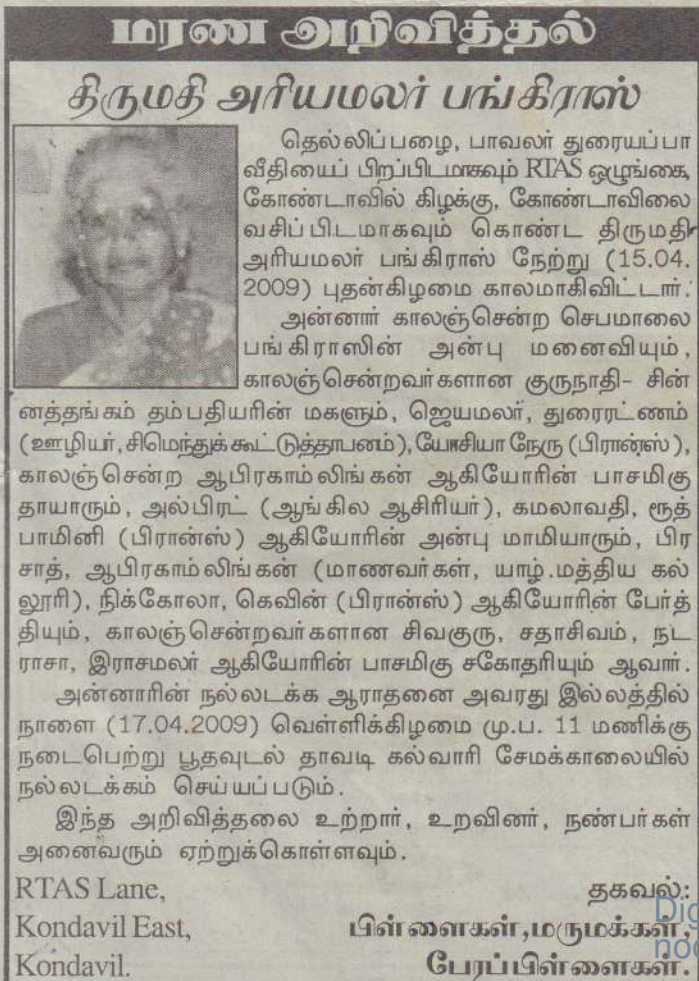 மரண அறிவித்தல்
திருமதி அரியமலர் பங்கிராஸ்
தெல்லிப்பழை, பாவலர் துரையப்பா
வீதியைப் பிறப்பிடமாகவும் RTAS ஒழுங்கை,
கோண்டாவில் கிழக்கு, கோண்டாவிலை
வசிப்பிடமாகவும் கொண்ட திருமதி
அரியமலர் பங்கிராஸ் நேற்று (15.04.
2009) புதன்கிழமை காலமாகிவிட்டார்.
அன்னார் காலஞ்சென்ற செபமாலை
பங்கிராஸின் அன்பு மனைவியும்,
காலஞ்சென்றவர்களான குருநாதி- சின்
னத்தங்கம் தம்பதியரின் மகளும், ஜெயமலர், துரைரட்ணம்
(ஊழியர்,சிமெந்துக்கூட்டுத்தாபனம்),யோசியா நேரு (பிரான்ஸ்),
காலஞ்சென்ற ஆபிரகாம்லிங்கன் ஆகியோரின் பாசமிகு
தாயாரும், அல்பிரட் (ஆங்கில ஆசிரியர்), கமலாவதி, ரூத்
பாமினி (பிரான்ஸ்) ஆகியோரின் அன்பு மாமியாரும், பிர
சாத், ஆபிரகாம்லிங்கன் (மாணவர்கள், யாழ்.மத்திய கல்
லூரி), நிக்கோலா, கெவின் (பிரான்ஸ்) ஆகியோரின் பேர்த்
தியும், காலஞ்சென்றவர்களான சிவகுரு, சதாசிவம், நட
ராசா, இராசமலர் ஆகியோரின் பாசமிகு சகோதரியும் ஆவார்.
அன்னாரின் நல்லடக்க ஆராதனை அவரது இல்லத்தில்
நாளை (17.04.2009) வெள்ளிக்கிழமை மு.ப. 11 மணிக்கு
நடைபெற்று பூதவுடல் தாவடி கல்வாரி சேமக்காலையில்
நல்லடக்கம் செய்யப்படும்.
இந்த அறிவித்தலை உற்றார், உறவினர், நண்பர்கள்
அனைவரும் ஏற்றுக்கொள்ளவும்.
RTAS Lane, தகவல்:
Kondavil East, பிள்ளைகள்,மருமக்கள்,
Kondavil. பேரப்பிள்ளைகள்.